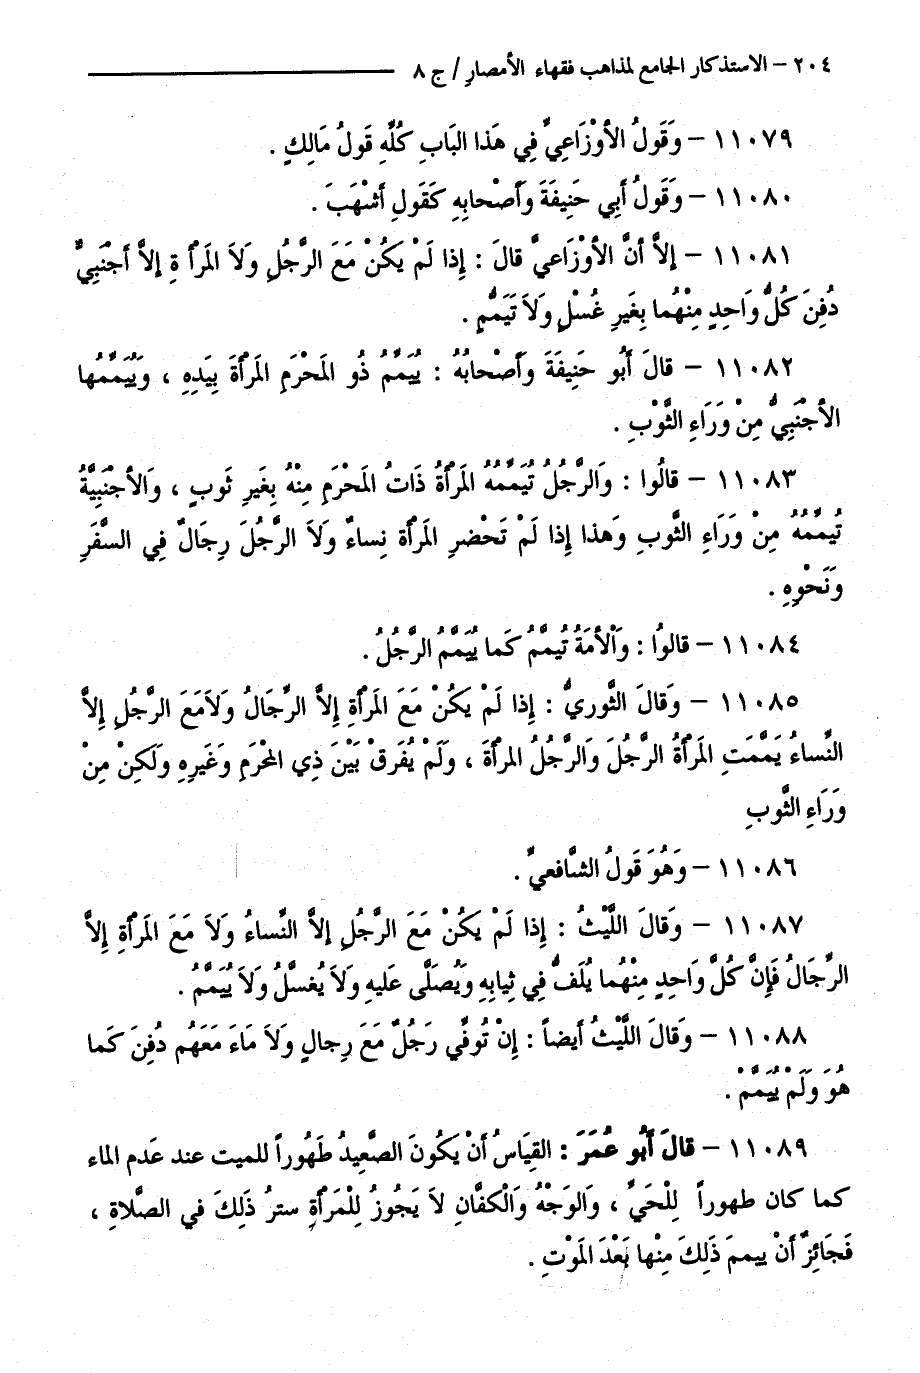 ٢٠٤ – الاستذكار الجامع لمذاهب فقهاء الأمصار / ج ٨
١١٠٧٩ – وَقَولُ الأَوْزَاعِيِّ فِي هَذا البَابِ كُلِّهِ قَولُ مَالِكٍ .
١١٠٨٠ – وَقَولُ أَبِي حَنِيفَةَ وَأَصْحابِهِ كَقَولِ أَشْهَبَ .
١١٠٨١ – إِلاَّ أَنَّ الأَوْزَاعيَّ قالَ : إِذا لَمْ يَكُنْ مَعَ الرَّجُلِ وَلاَ المَرْأَ ةِ إلاَّ أَجْنَبِيٌّ
دُفِنَ كُلُّ وَاحِدٍ مِنْهُما بِغَيرِ غُسْلٍ وَلاَ تَيَمُّمٍ .
١١٠٨٢ – قالَ أَبُو حَنِيفَةَ وَأَصْحابُهُ : يُيَمَّمُ ذُو المَحْرَمِ المَرْأَةَ بِيَدِهِ ، وَيُيَمِّمُها
الأَجْنَبِيُّ مِنْ وَرَاءِ الثَّوْبِ .
١١٠٨٣ – قالُوا : وَالرَّجُلُ تُيَمِّمُهُ المَرْأَةُ ذَاتُ المَحْرَمِ مِنْهُ بِغَيرِ ثَوبٍ ، وَالأَجْنَبِيَّةُ
تُيَمِّمُهُ مِنْ وَرَاءِ الثَّوبِ وَهذا إِذا لَمْ تَحْضرِ المَرْأَة نِساءٌ وَلاَ الرَّجُلَ رِجَالٌ فِي السَّفَرِ
وَنَحْوِهِ .
١١٠٨٤ – قالوُا : وَالأَمَةُ تُيمَّمُ كَما يُيَمَّمُ الرَّجُلُ .
١١٠٨٥ – وَقَالَ الثَّوريُّ : إِذا لَمْ يَكُنْ مَعَ المَرْأَةِ إِلاَّ الرِّجَالُ وَلاَمَعَ الرَّجُلِ إِلاَّ
النِّساءُ يَمَّمَتِ المَرْأَةُ الرَّجُلَ وَالرَّجُلُ المرأَةَ ، وَلَمْ يُفَرقْ بَيْنَ ذِي المحْرَمِ وَغَيرِهِ وَلَكِنْ مِنْ
وَرَاءِ الثَّوبِ
١١٠٨٦ – وَهُوَ قَولُ الشَّافعيِّ .
١١٠٨٧ – وَقَالَ اللَّيْثُ : إِذا لَمْ يَكُنْ مَعَ الرَّجُلِ إلاَّ النِّساءُ وَلاَ مَعَ المَرْأَةِ إِلاَّ
الرِّجَالُ فَإِنَّ كُلَّ وَاحِدٍ مِنْهُما يُلَفُّ فِي ثِيابِهِ وَيُصَلَّى عَليهِ وَلاَ يُغسَّلُ وَلاَ يُيَمَّمُ .
١١٠٨٨ – وَقَالَ اللَّيْثُ أَيضاً : إِنْ تُوفِّي رَجُلٌ مَعَ رِجالٍ وَلاَ مَاءَ مَعَهُم دُفِنَ كَما
هُوَ وَلَمْ يُيَمَّمْ .
١١٠٨٩ – قالَ أَبُو عُمَرَ : القِيَاسُ أَنْ يَكُونَ الصَّعِيدُ طَهُوراً للميت عند عَدم الماء
كما كان طهوراً لِلْحَيِّ ، وَالوَجْهُ وَالْكفَّانِ لاَ يَجُوزُ لِلْمَرْأَةِ سترُ ذَلِكَ في الصَّلاةِ ،
فَجَائِزٌ أَنْ ييممَ ذَلِكَ مِنْها بَعْدَ المَوْتِ .